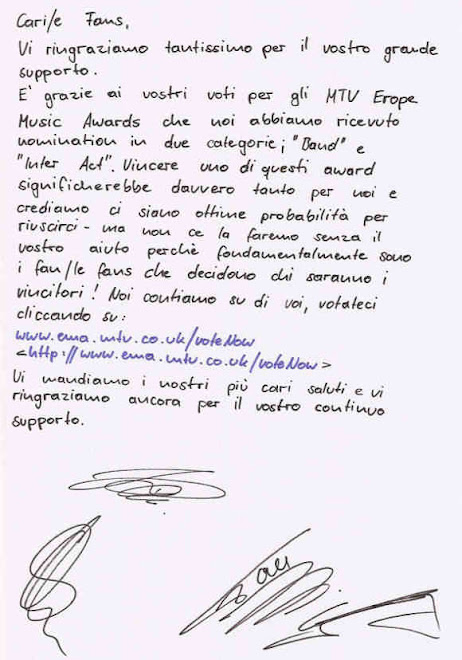 Cari/e Fans,
Vi ringraziamo tantissimo per il vostro grande
supporto.
E' grazie ai vostri voti per gli MTV Erope
Music Awards che noi abbiamo ricevuto
nomination in due categorie; "Band" e
"Inter Act". Vincere uno di questi award
significherebbe davvero tanto per noi e
crediamo ci siano ottime probabilità per
riuscirci - ma non ce la faremo senza il
vostro aiuto perchè fondamentalmente sono
i fan/le fans che decidono chi saranno i
vincitori! Noi contiamo su di voi, votateci
cliccando su:
www.ema.mtv.co.uk/voteNow
<http://www.ema.mtv.co.uk/voteNow>
Vi mandiamo i nostri più cari saluti e vi
ringraziamo ancora per il vostro continuo
supporto.